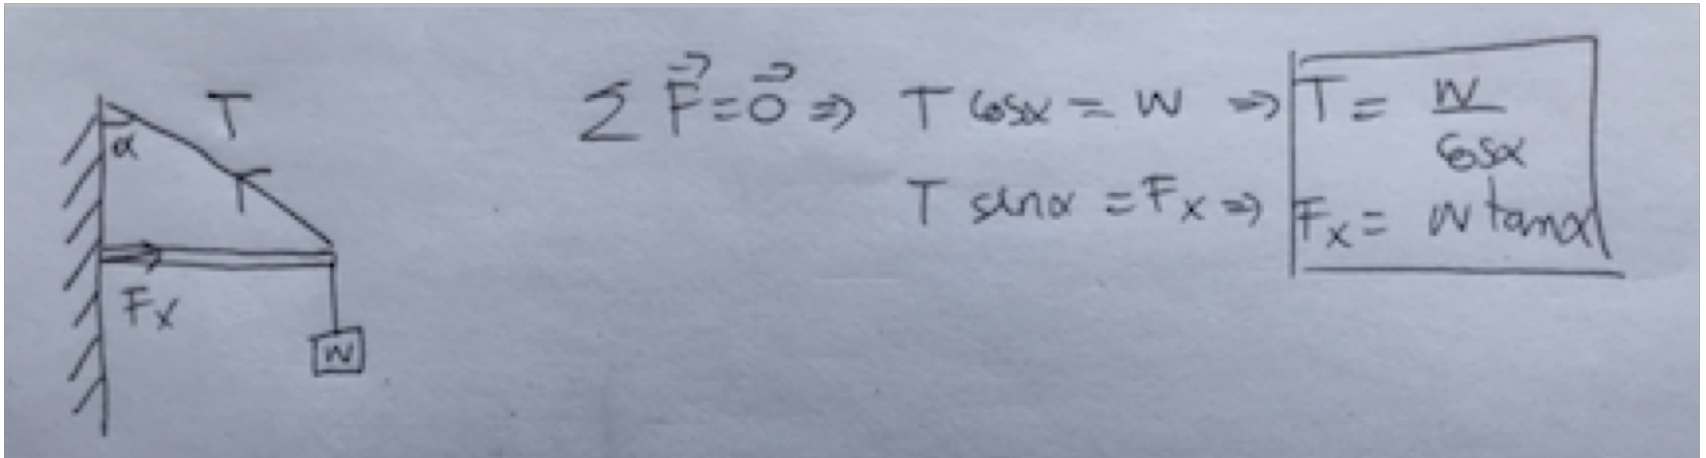 T
α
T
Fx
W
∑ F⃗ = 0⃗ ⇒ T cosα = W ⇒ T = W/cosα
T sinα = Fx ⇒ Fx = W tanα